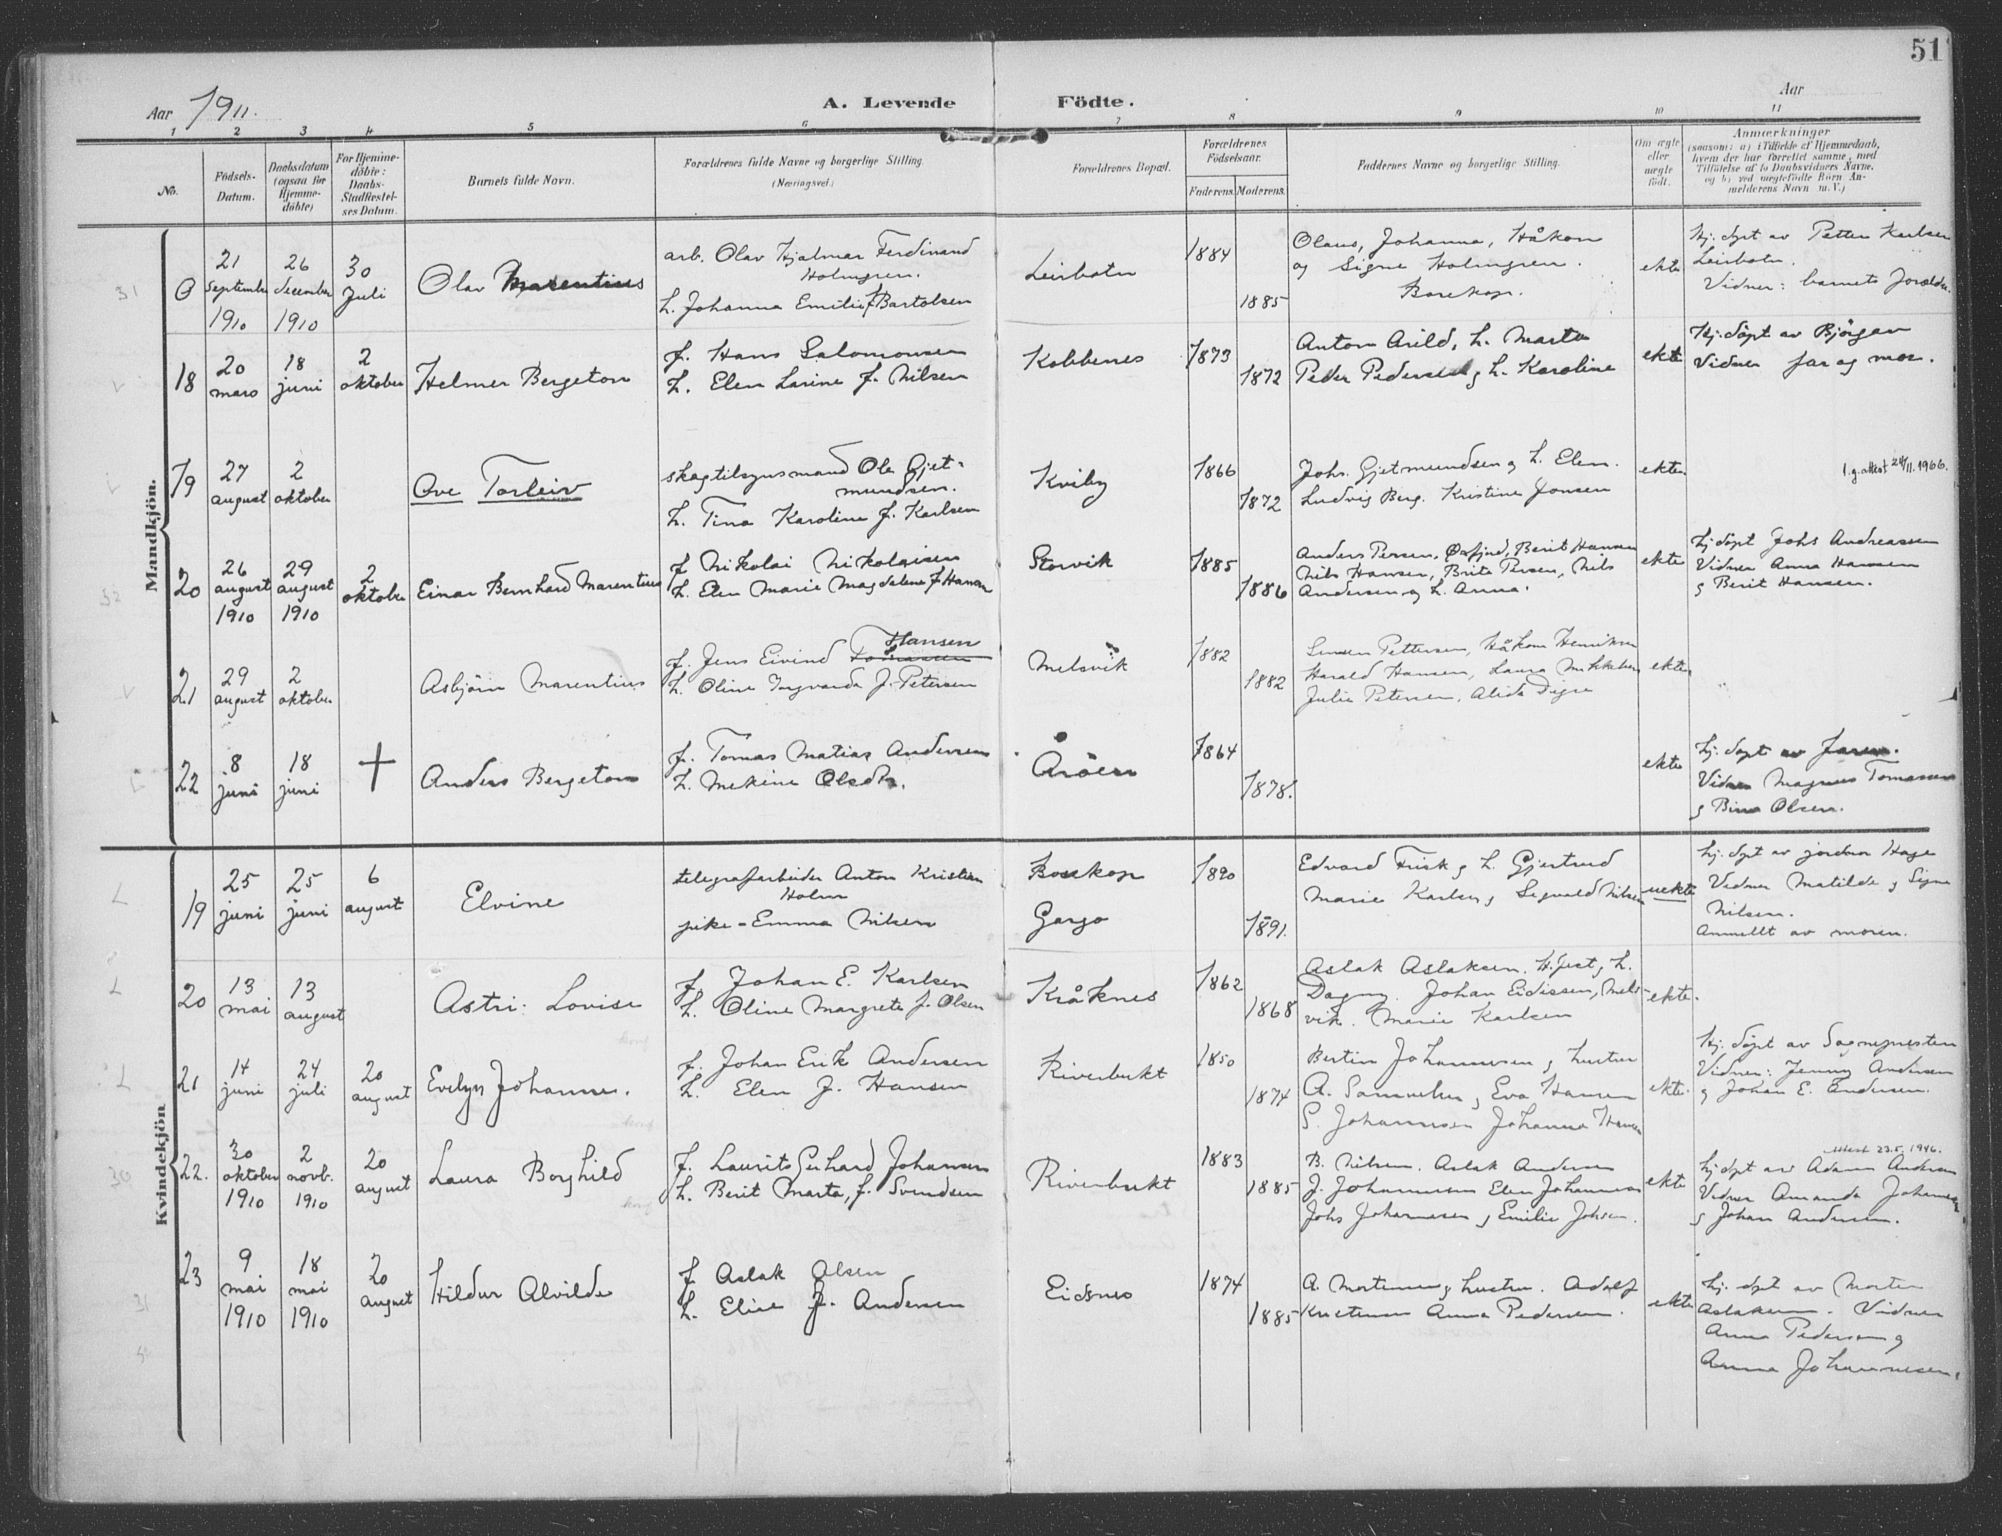 51
Aar 1911.
A. Levende Födte.
Aar
1 2 3 4 5 6 7 8 9 10 11
No.
Födsels-Datum.
Daabsdatum (ogsaa for Hjemme-döbte)
For Hjemme-döbte: Daabs-Stadfæstel-ses Datum.
Barnets fulde Navn.
Forældrenes fulde Navne og borgerlige Stilling. (Næringsvei.)
Forældrenes Bopæl.
Forældrenes Födselsaar.
Faderens. Moderens.
Faddernes Navne og borgerlige Stilling.
Om ægte eller uægte födt.
Anmærkninger
(saasom: a) i Tilfælde af Hjemmedaab, hvem der har forrettet samme, med Tilföielse af to Daabsvidners Navne. og b) ved uægtefödte Börn An-melderens Navn m. V.)
Mandkjön.
31
0
21 September 1910
26 december 1910
30 Juli
Olav Marentius
arb. Olav Hjalmar Ferdinand Holmgren.
h. Johanna Emilie f. Bartolsen
Leirbotn
1884
1885
Olaus, Johanna, Håkon
og Signe Holmgren.
Bosekop.
ekte
Hj. døpt av Petter Karlsen
Leirbotn.
Vidner: barnets forældre.
18
20 mars
18 juni
2 oktober
Helmer Bergeton
f. Hans Salomonsen
h. Elen Larine f. Nilsen
Kobbenes
1873
1872
Anton Arild, h. Marta
Peder Pedersen, h. Karoline
ekte
Hj. döpt av Björgan
Vidner far og mor.
19
27 august
2 oktober
Ove Torleiv
skogtilsynsmand Ole Gjet-
mundsen.
h. Tina Karoline f. Karlsen
Kviby
1866
1872
Johs. Gjetmundsen og h. Elen.
Ludvig Berg. Kristine Jonsen
ekte
1.g. attest 24/11.1966.
20
26 august 1910
29 august 1910
2 oktober
Einar Bernhard Marentius
f. Nikolai Nikolaisen
h. Elen Marie Magdalene f. Hansen
Storvik
1885
1886
Anders Persen, Øxfjord, Berit Hansen
Nils Hansen, Brita Persen, Nils
Andersen og h. Anna.
ekte
hj. döpt Johs Andreassen
Vidner Anna Hansen
og Berit Hansen.
21
29 august
2 oktober
Asbjörn Marentius
Hansen
f. Jens Eivind Tomassen
h. Oline Ingvarda f. Petersen
Melsvik
1882
1882
Pettersen, Håkon Henriksen
Harald Hansen, Laura Mikkelsen
Julie Petersen, Alida Digre
ekte
22
8 juni
18 juni
+
Anders Bergeton
f. Tomas Matias Andersen
h. Mekine Olsdtr.
Åröen
1864
1878.
ekte
hj. döpt av faren.
Vidner Magnus Tomassen
og Bina Olsen.
Kvindekjön
19
25 juni
25 juni
6 august
Elvine
telegrafarbeider Anton Kristian
Holm
pike - Emma Nilsen
Bosekop
Gargo
1890
1891.
Edvard Frisk og h. Gjertrud
Marie Karlsen, Sigvald Nilsen
uekte
hj. døpt av jordmor Hage
Vidner Matilde og Signe
Nilsen.
Anmeldt av moren.
20
13 mai
13 august
Astri Lovise
f. Johan E. Karlsen
h. Oline Margrete f. Olsen
Kråknes
1862
1868
Aslak Aslaksen, h.
Dagny. Johan Eidissen, Mels-
vik. Marie Karlsen
ekte.
21
14 juni
24 juli
20 august
Evelyn Johanne.
f. Johan Erik Andersen
h. Elen f. Hansen
Riverbukt
1850
1874
Bertin Johannesen og hustru
A. Samuelsen, Eva Hansen
S. Johannesen Johanna Hansen
ekte.
Hj. döpt av Sognepresten
Vidner: Jenny Andersen
og Johan E. Andersen.
30
22.
30 oktober 1910
2 novb. 1910
20 august
Laura Borghild
f. Laurits Gerhard Johansen
h. Berit Marta, f. Svendsen
Riverbukt
1883
1885
B. Nilsen. Aslak Andersen
J. Johannesen Elen Johannesen
Johs Johannesen, Emilie Johsen.
ekte
attest 23.5.1946.
hj. døpt av Adam Andersen
Vidner Amanda Johannesen
og Johan Andersen.
31
23
9 mai 1910
18 mai 1910
20 august
Hildur Alvilde
f. Aslak Olsen
h. Elise f. Andersen
Eidsnes
1874
1885
A. Mortensen, hustru. Adolf
Kristensen Anna Pedersen.
ekte
hj. døpt av Morten
Aslaksen. Vidner
Anna Pedersen og
Anna Johannesen.